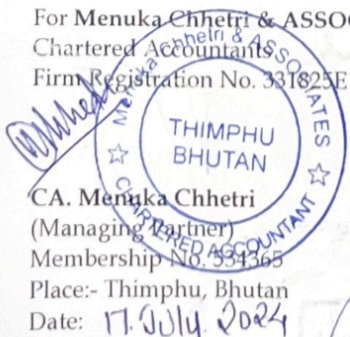 For Menuka Chhetri & ASSO
Chartered Accountants
Firm Registration No. 331825E
Menuka Chhetri & ASSOCIATES
THIMPHU
BHUTAN
CHARTERED ACCOUNTANT
CA. Menuka Chhetri
(Managing Partner)
Membership No. 534365
Place:- Thimphu, Bhutan
Date: 17. July. 2024